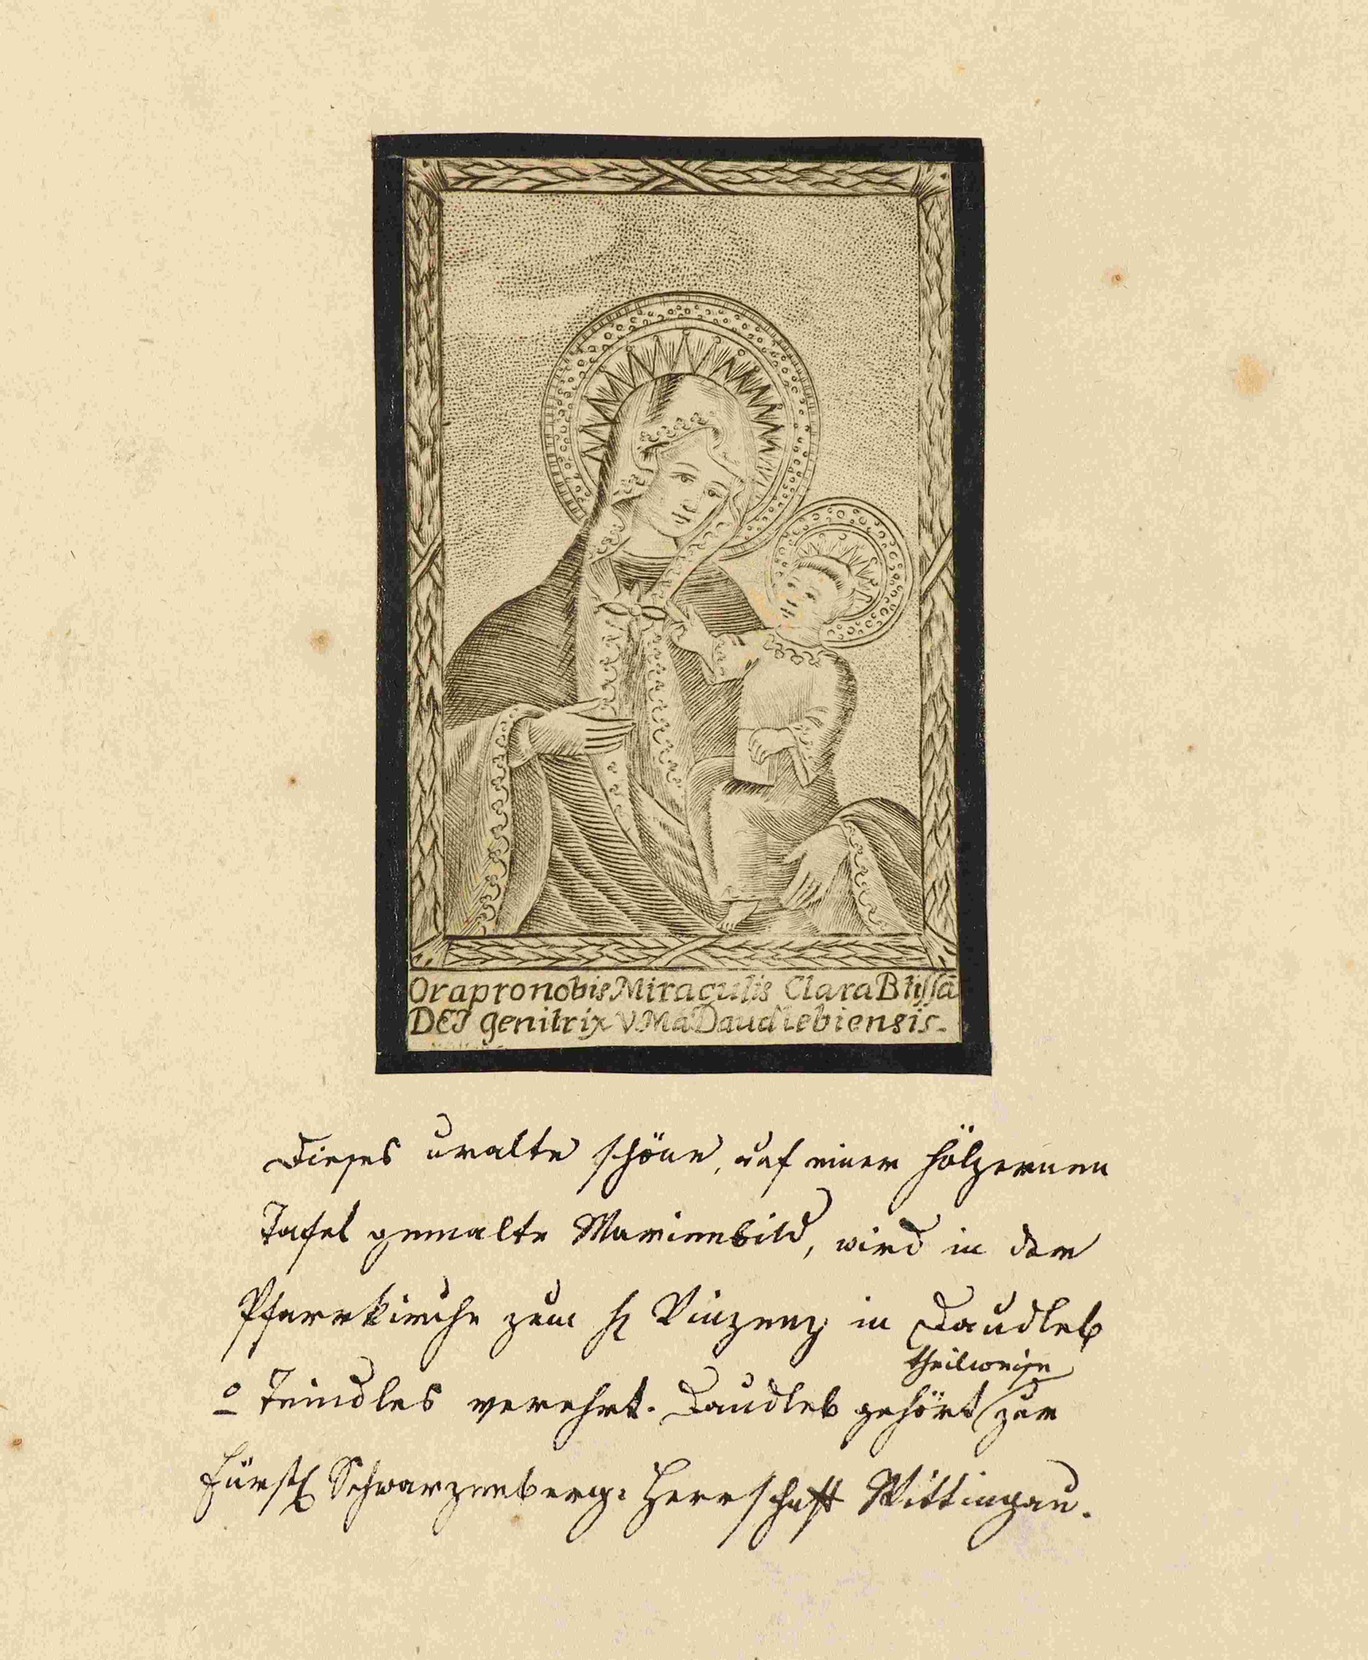 Ora pro nobis Miraculis Clara Btissã
DEI genitrix V Ma Daudlebiensis.
Dieses uralte schöne, auf einer hölzernen
Tafel gemalte Marienbild, wird in der
Pfarrkirche zum hl Vinzenz in Daudleb
theilweise
o Teindles verehrt. Daudleb gehört zur
fürstl Schwarzenberg: Herrschaft Wittingau.